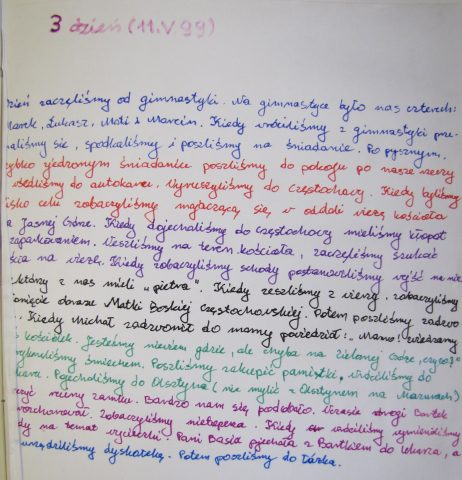 3 dzień (11.V.99)
Dzień zaczęliśmy od gimnastyki. Na gimnastyce było nas czterech:
Marek, Łukasz, Mati i Marcin. Kiedy wróciliśmy z gimnastyki prze-
braliśmy się, spotkaliśmy i poszliśmy na śniadanie. Po pysznym,
szybko zjedzonym śniadaniu poszliśmy do pokoju po nasze rzeczy
wsiedliśmy do autokaru. Wyruszyliśmy do Częstochowy. Kiedy byliśmy
blisko celu zobaczyliśmy majaczącą się, w oddali wieżę kościoła
na Jasnej Górze. Kiedy dojechaliśmy do Częstochowy mieliśmy kłopot
z zaparkowaniem. Weszliśmy na teren kościoła, zaczęliśmy szukać
wejścia na wieżę. Kiedy zobaczyliśmy schody postanowiliśmy wejść na nie
Niektórzy z nas mieli "pietra". Kiedy zeszliśmy z wieży, zobaczyliśmy
odsłonięcie obrazu Matki Boskiej Częstochowskiej. Potem poszliśmy zadzwo
. Kiedy Michał zadzwonił do mamy powiedział: "Mamo, zwiedzamy
kościółek. Jesteśmy niewiem gdzie, ale chyba na Zielonej Górze,
wybuchnęliśmy śmiechem. Poszliśmy zakupić pamiątki, wróciliśmy do
autokaru. Pojechaliśmy do Olsztyna (nie mylić z Olsztynem na Mazurach)
zobaczyć ruiny zamku. Bardzo nam się podobało. W czasie drogi Bartek
zachorował. Zobaczyliśmy nietoperza. Kiedy wróciliśmy wymieniliśmy
poglądy na temat wycieczki. Pani Basia pojechała z Bartkiem do lekarza, a
my urządziliśmy dyskotekę. Potem poszliśmy do łóżka.